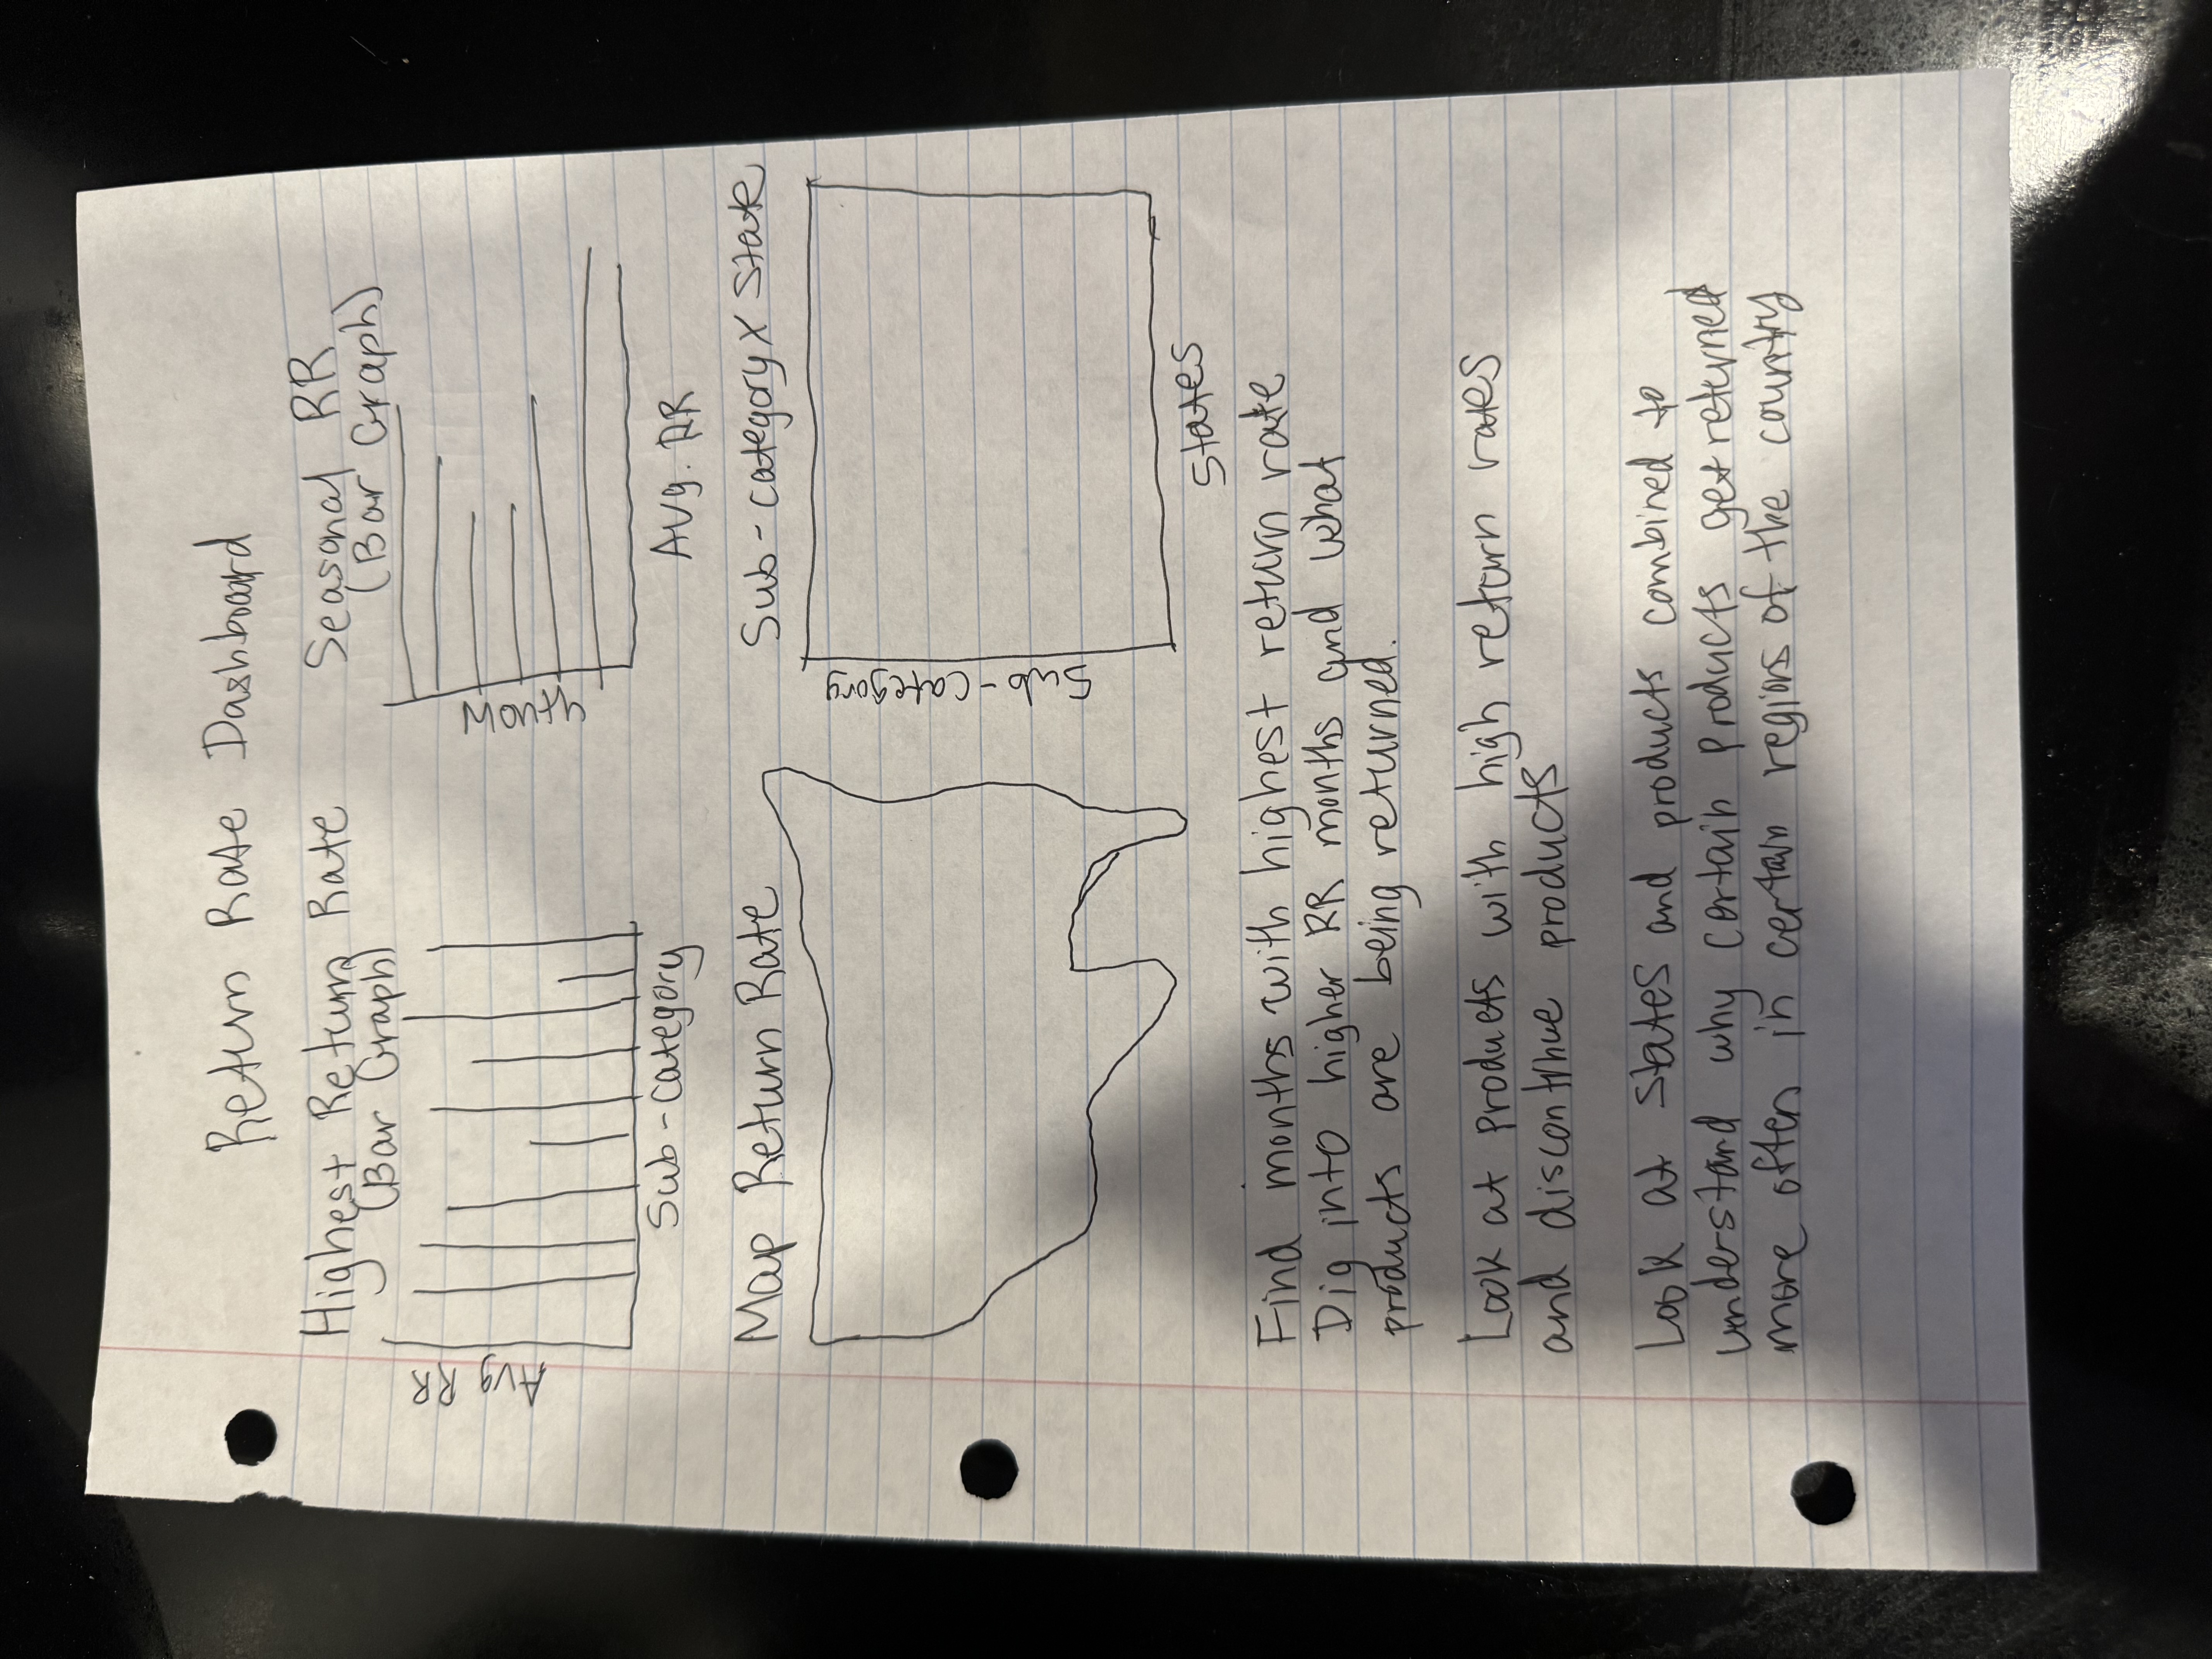 Return Rate Dashboard
Highest Return Rate
(Bar Graph)
Avg RR
Sub-Category
Seasonal RR
(Bar Graph)
Month
Avg. RR
Map Return Rate
Sub-category X State
Sub-Category
States
Find months with highest return rate
Dig into higher RR months and what
products are being returned.
Look at products with high return rates
and discontinue products
Look at states and products combined to
understand why certain products get returned
more often in certain regions of the country